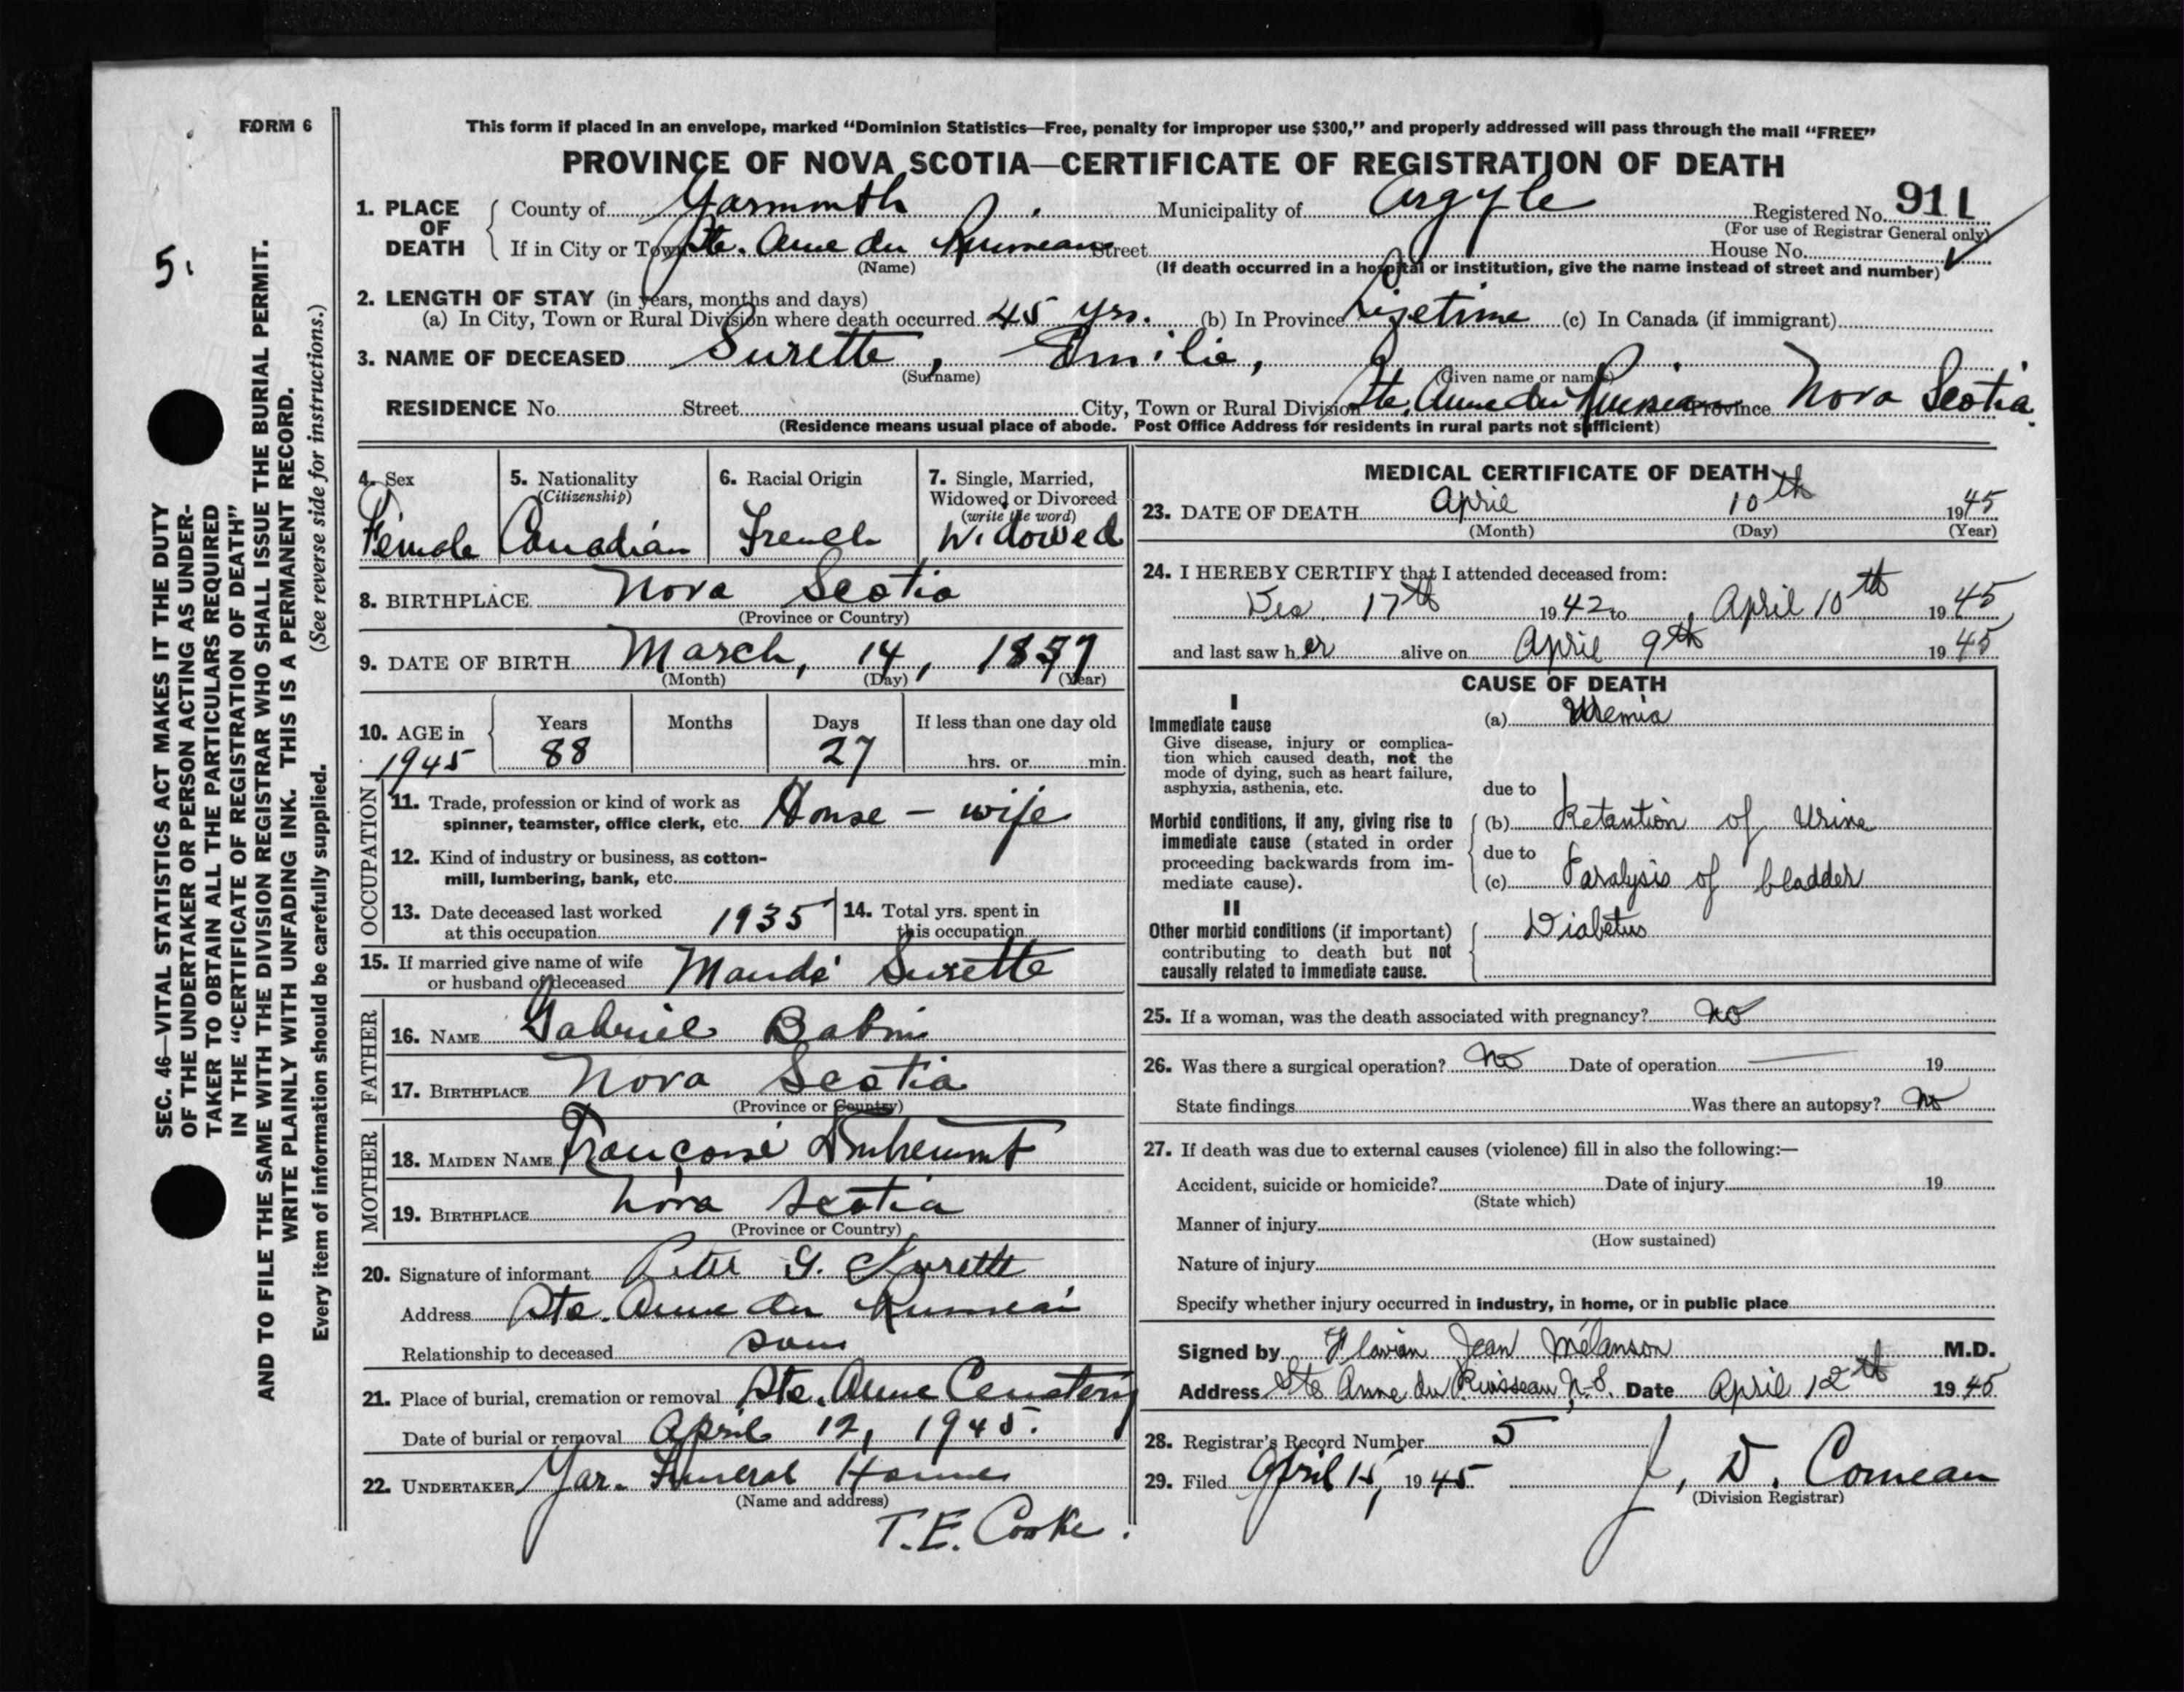 FORM 6
This form if placed in an envelope, marked “Dominion Statistics—Free, penalty for improper use $300,” and properly addressed will pass through the mail “FREE”
PROVINCE OF NOVA SCOTIA—CERTIFICATE OF REGISTRATION OF DEATH
1. PLACE OF DEATH County of Yarmouth Municipality of Argyle Registered No. 911
(For use of Registrar General only)
If in City or Town Ste. Anne du Ruisseau Street House No.
(Name) (If death occurred in a hospital or institution, give the name instead of street and number)
2. LENGTH OF STAY (in years, months and days)
(a) In City, Town or Rural Division where death occurred 45 yrs. (b) In Province Lifetime (c) In Canada (if immigrant)
3. NAME OF DECEASED Surette, Emilie,
(Surname) (Given name or names)
RESIDENCE No. Street City, Town or Rural Division Ste. Anne du Ruisseau Province Nova Scotia
(Residence means usual place of abode. Post Office Address for residents in rural parts not sufficient)
4. Sex Female
5. Nationality (Citizenship) Canadian
6. Racial Origin French
7. Single, Married, Widowed or Divorced (write the word) Widowed
8. BIRTHPLACE Nova Scotia
(Province or Country)
9. DATE OF BIRTH March, 14, 1857
(Month) (Day) (Year)
10. AGE in 1945 Years 88 Months Days 27 If less than one day old hrs. or min.
OCCUPATION
11. Trade, profession or kind of work as spinner, teamster, office clerk, etc. House – wife
12. Kind of industry or business, as cotton-mill, lumbering, bank, etc.
13. Date deceased last worked at this occupation 1935
14. Total yrs. spent in this occupation
15. If married give name of wife or husband of deceased Mandé Surette
FATHER
16. NAME Gabriel Babin
17. BIRTHPLACE Nova Scotia
(Province or Country)
MOTHER
18. MAIDEN NAME Françoise
19. BIRTHPLACE Nova Scotia
(Province or Country)
20. Signature of informant Peter G. Surette
Address Ste. Anne du Ruisseau
Relationship to deceased son
21. Place of burial, cremation or removal Ste. Anne Cemetery
Date of burial or removal April 12, 1945.
22. UNDERTAKER Yar. Funeral Home
(Name and address)
T. E. Cooke.
MEDICAL CERTIFICATE OF DEATH
23. DATE OF DEATH April 10th 1945
(Month) (Day) (Year)
24. I HEREBY CERTIFY that I attended deceased from:
Dec 17th 1942 to April 10th 1945
and last saw her alive on April 9th 1945
CAUSE OF DEATH
I
Immediate cause (a) Uremia
Give disease, injury or complication which caused death, not the mode of dying, such as heart failure, asphyxia, asthenia, etc.
due to
Morbid conditions, if any, giving rise to immediate cause (stated in order proceeding backwards from immediate cause).
(b) Retantion of Urine
due to
(c) Paralysis of bladder
II
Other morbid conditions (if important) contributing to death but not causally related to immediate cause.
Diabetus
25. If a woman, was the death associated with pregnancy? no
26. Was there a surgical operation? No Date of operation — 19
State findings Was there an autopsy? No
27. If death was due to external causes (violence) fill in also the following:—
Accident, suicide or homicide? Date of injury 19
(State which)
Manner of injury
(How sustained)
Nature of injury
Specify whether injury occurred in industry, in home, or in public place
Signed by Flavien Jean Mélanson M.D.
Address Ste Anne du Ruisseau, N-S. Date April 12th 1945
28. Registrar's Record Number 5
29. Filed April 15, 1945 J. D. Comeau
(Division Registrar)
5.
SEC. 46—VITAL STATISTICS ACT MAKES IT THE DUTY
OF THE UNDERTAKER OR PERSON ACTING AS UNDER-
TAKER TO OBTAIN ALL THE PARTICULARS REQUIRED
IN THE “CERTIFICATE OF REGISTRATION OF DEATH”
AND TO FILE THE SAME WITH THE DIVISION REGISTRAR WHO SHALL ISSUE THE BURIAL PERMIT.
WRITE PLAINLY WITH UNFADING INK. THIS IS A PERMANENT RECORD.
Every item of information should be carefully supplied. (See reverse side for instructions.)